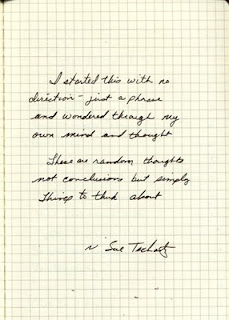 I started this with no
direction - just a phrase
and wondered through my
own mind and thought
These are random thoughts
not conclusions but simply
Things to think about
~ Sue